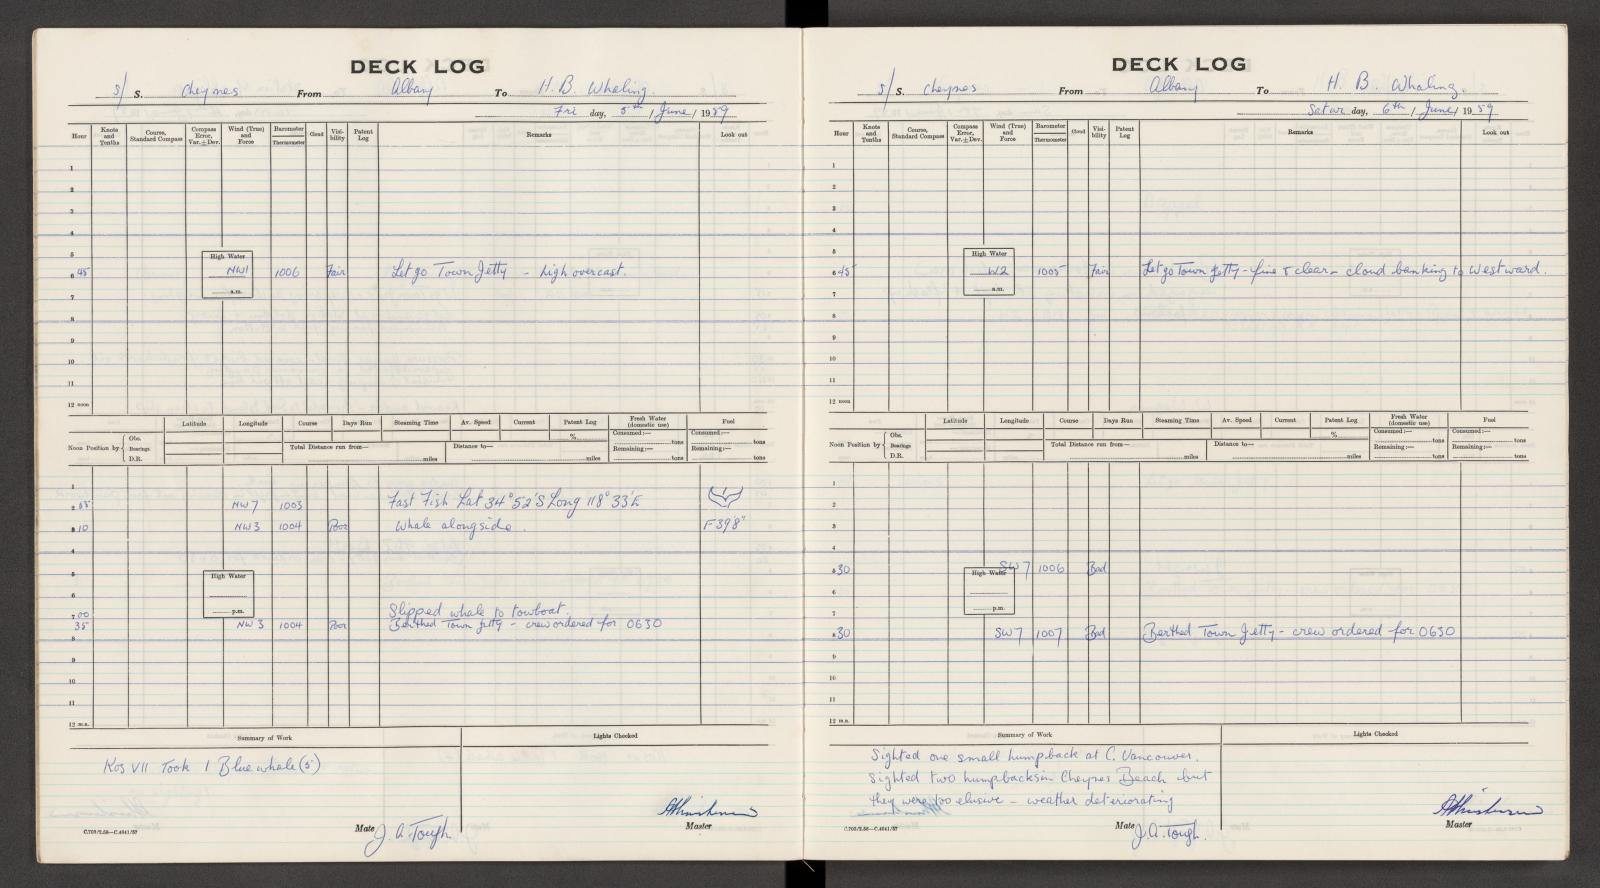 DECK LOG
s/ S. Cheynes From Albany To H. B. Whaling.
Fri day, 5th / June / 1959
Hour Knots and Tenths Course, Standard Compass Compass Error, Var.±Dev. Wind (True) and Force Barometer Thermometer Cloud Visibility Patent Log Remarks Look out
1
2
3
4
5
High Water
6 45 NW1 1006 Fair Let go Town Jetty - high overcast.
a.m.
7
8
9
10
11
12 noon
Latitude Longitude Course Days Run Steaming Time Av. Speed Current Patent Log Fresh Water (domestic use) Fuel
% Consumed:— tons Consumed:— tons
Noon Position by Obs. Bearings D.R. Total Distance run from— miles Distance to— miles Remaining:— tons Remaining:— tons
1
2 55 NW 7 1003 Fast Fish Lat 34°52'S Long 118°33'E
3 10 NW 3 1004 Poor Whale alongside. F 39'8"
4
5
High Water
6
p.m.
7 00 Slipped whale to towboat.
35 NW 3 1004 Poor Berthed Town Jetty - crew ordered for 0630
8
9
10
11
12 m.n.
Summary of Work Lights Checked
Kos VII Took 1 Blue whale (5)
C.702/2.58—C.4041/57 Mate J. A. Tough Master
DECK LOG
s/ S. Cheynes From Albany To H. B. Whaling.
Satur day, 6th / June / 1959
Hour Knots and Tenths Course, Standard Compass Compass Error, Var.±Dev. Wind (True) and Force Barometer Thermometer Cloud Visibility Patent Log Remarks Look out
1
2
3
4
5
High Water
6 45 W2 1005 Fair Let go Town Jetty - fine & clear - cloud banking to Westward.
a.m.
7
8
9
10
11
12 noon
Latitude Longitude Course Days Run Steaming Time Av. Speed Current Patent Log Fresh Water (domestic use) Fuel
% Consumed:— tons Consumed:— tons
Noon Position by Obs. Bearings D.R. Total Distance run from— miles Distance to— miles Remaining:— tons Remaining:— tons
1
2
3
4
5 30 SW 7 1006 Bad
High Water
6
p.m.
7
8 30 SW 7 1007 Bad Berthed Town Jetty - crew ordered for 0630
9
10
11
12 m.n.
Summary of Work Lights Checked
Sighted one small humpback at C. Vancouver.
Sighted two humpbacks in Cheynes Beach but
they were too elusive - weather deteriorating
C.702/2.58—C.4041/57 Mate J. A. Tough. Master